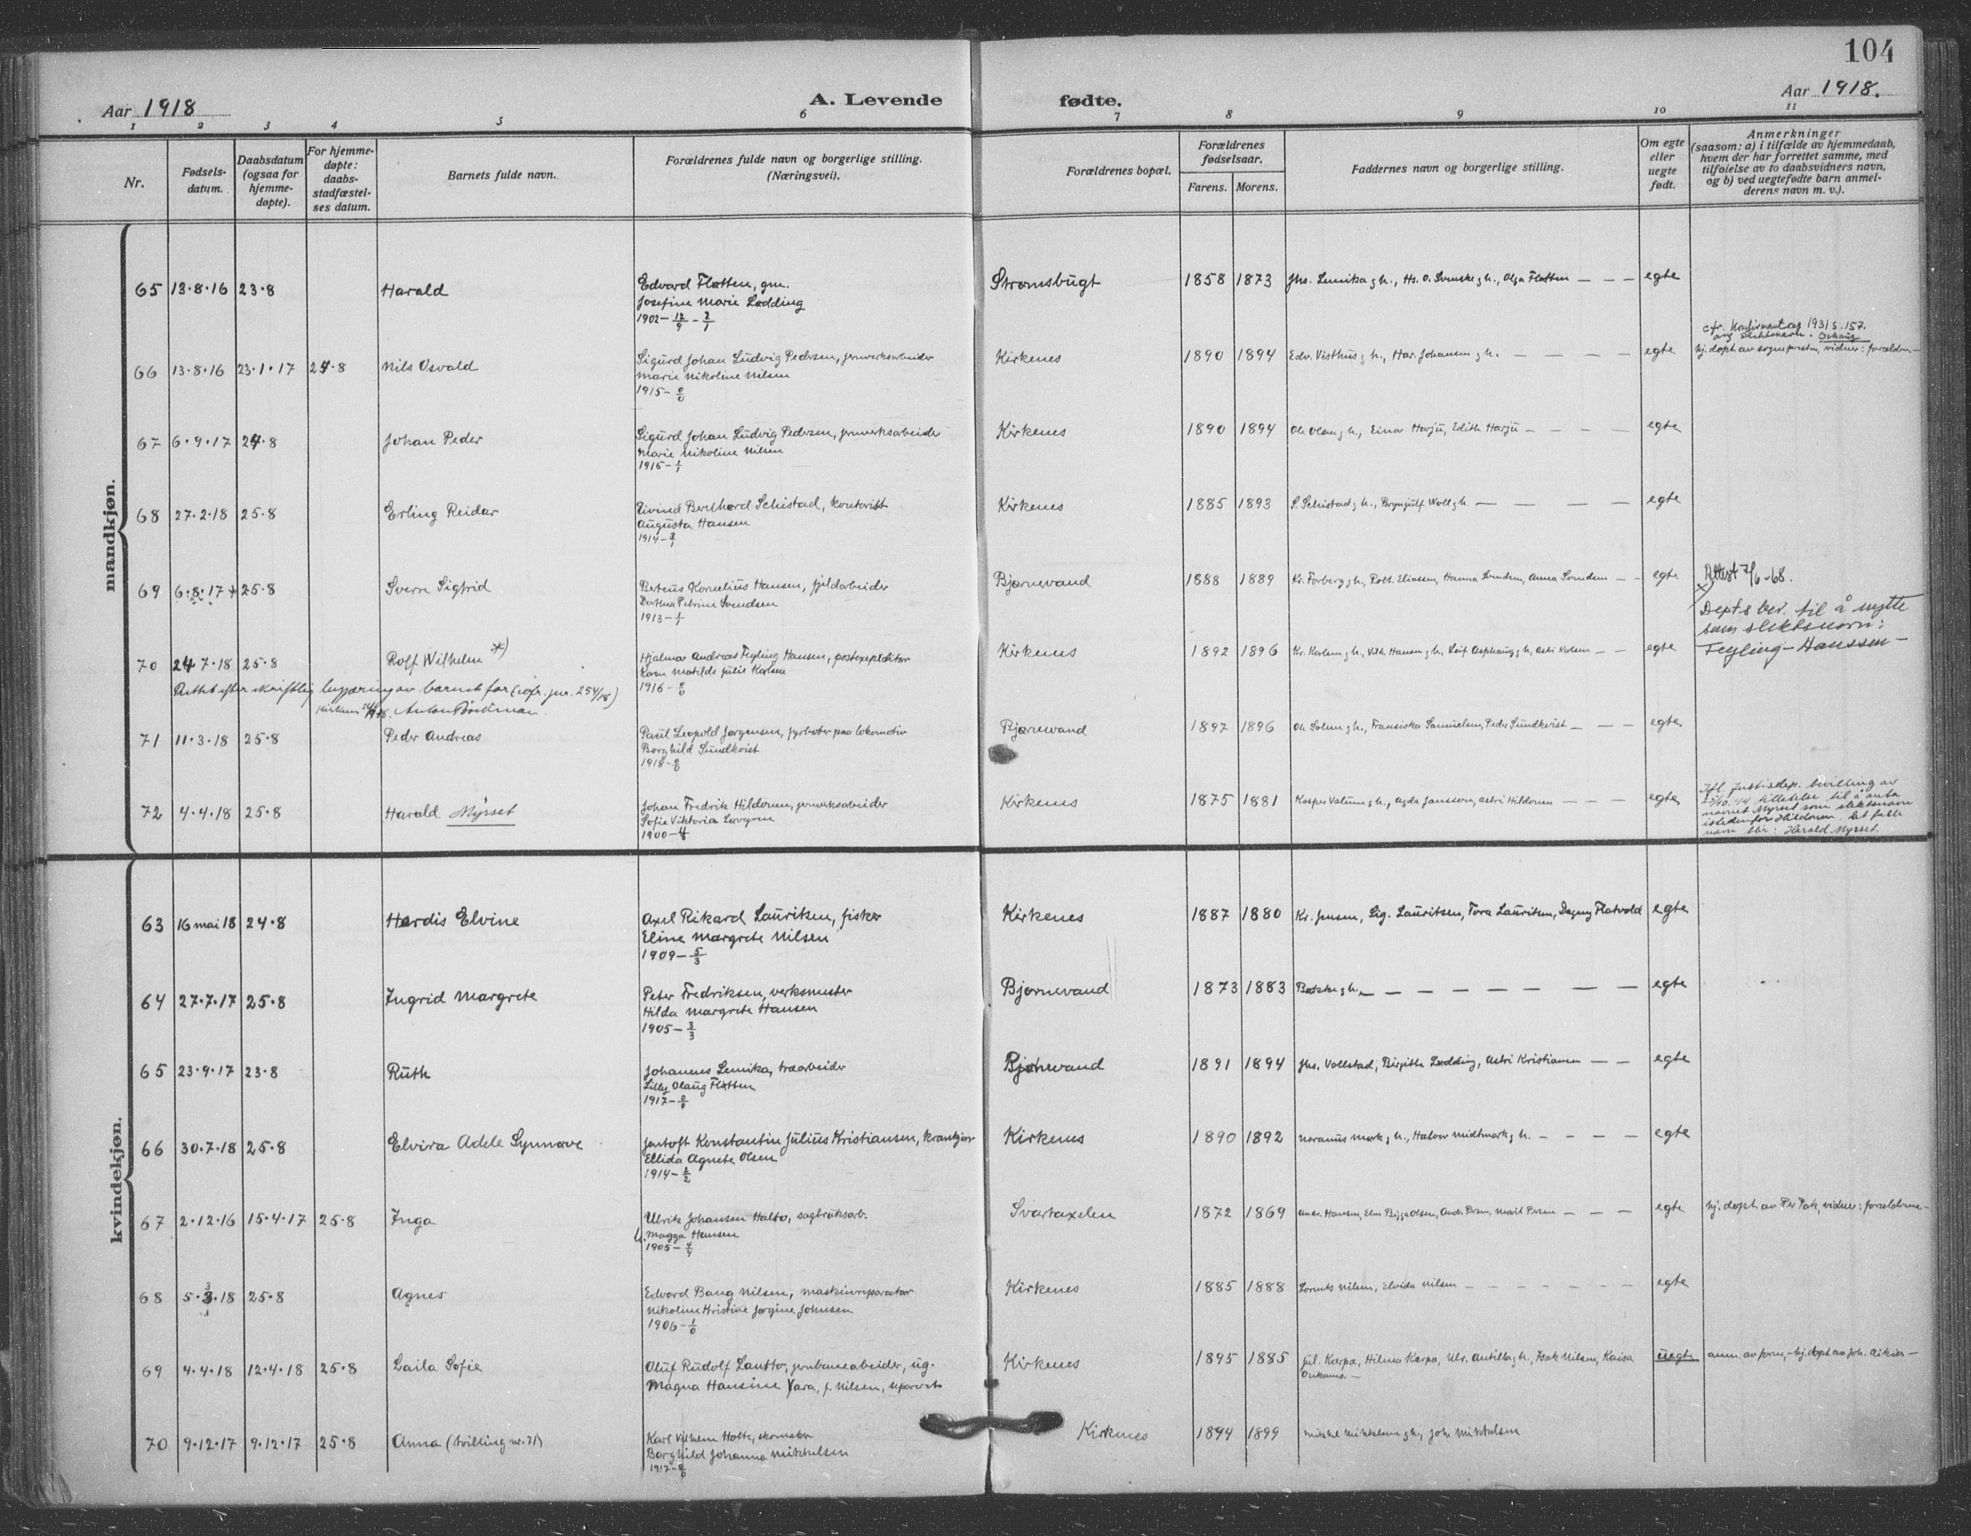 104
Aar 1918
A. Levende
fødte.
Aar 1918.
1 2 3 4 5 6 7 8 9 10 11
Nr.
Fødsels-
datum.
Daabsdatum
(ogsaa for
hjemme-
døpte).
For hjemme-
døpte:
daabs-
stadfæstel-
ses datum.
Barnets fulde navn.
Forældrenes fulde navn og borgerlige stilling.
(Næringsvei).
Forældrenes bopæl.
Forældrenes
fødselsaar.
Farens. Morens.
Faddernes navn og borgerlige stilling.
Om egte
eller
uegte
født.
Anmerkninger
(saasom: a) i tilfælde av hjemmedaab,
hvem der har forrettet samme, med
tilføielse av to daabsvidners navn,
og b) ved uegtefødte barn anmel-
derens navn m. v.).
mandkjøn.
65 13.8.16 23.8 Harald
Edvard Flotten, gm.
Josefine Marie Lødding
1902 – 12/9 – 2/1
Strømsbugt 1858 1873 Jhs. Lemika g h., Hs. O. Svenske g h., Olga Flotten — — — egte
cfr. Konfirmant 1931 s. 157.
66 13.8.16 23.1.17 24.8 Nils Osvald
Sigurd Johan Ludvig Pedersen, jernverksarbeider
Marie Nikoline Nilsen
1915 – 0/0
Kirkenes 1890 1894 Edv. Visthus g h., Har. Johansen g h. — — — — egte hj. døpt av sognepresten, vidner: forældre. —
67 6.9.17 24.8 Johan Peder
Sigurd Johan Ludvig Pedersen, jernverksarbeider
Marie Nikoline Nilsen
1915 – 1/1
Kirkenes 1890 1894 Ole Olsen g h., Einar Harju, Edith Harju — — — — egte
68 27.2.18 25.8 Erling Reidar
Eivind Bernhard Schistad, kontorist
Augusta Hansen
1914 – 3/1
Kirkenes 1885 1893 S. Schistad g h., Bryngulf Woll g h. — — — — egte
69 6.8.17 25.8 Sverre Sigfrid
Berteus Kornelius Hansen, fjeldarbeider
Dorthea Petrine Svendsen
1913 – 1/1
Bjørnevand 1888 1889 Kr. Forberg g h., Robt. Eliassen, Hanna Svendsen, Anna Svendsen — — egte
Attest 7/6 -68.
70 24.7.18 25.8 Rolf Wilhelm *)
Hjalmar Andreas Fegling Hansen, postexpeditør
Karen Matilde Julie Karlsen
1916 – 0/0
Kirkenes 1892 1896 Kr. Karlsen g h., Vilh. Hansen g h., Leif Asphaug g h., Astri Karlsen — — egte
Dept.s bev. til å nytte
som slektsnavn:
Fegling-Hanssen –
Rettet efter skriftlig begjæring av barnet far (cfr. jnr. 254/18)
71 11.3.18 25.8 Peder Andreas
Paul Leopold Jørgensen, fyrbøter paa lokomotiv
Borghild Sundkvist
1918 – 0/0
Bjørnevand 1897 1896 Ole Solem g h., Fransiska Samuelsen, Peder Sundkvist — — — egte
72 4.4.18 25.8 Harald Myrset
Johan Fredrik Hildonen, jernverksarbeider
Sofie Viktoria Lovgren
1900 – 4
Kirkenes 1875 1881 Kasper Vatum g h., Agda Jansson, Astri Hildonen — — — egte
Ifl. Justisdep. bevilling av
25/10.44 tillatelse til å anta
navnet Myrset som slektsnavn
istedenfor Hildonen. Det fulle
navn blir: Harald Myrset.
kvindekjøn.
63 16 mai 18 24.8 Herdis Elvine
Axel Rikard Lauritsen, fisker
Eline Margrete Nilsen
1909 – 5/3
Kirkenes 1887 1880 Kr. Jensen, Sig. Lauritsen, Tora Lauritsen, Dagny Flatvold egte
64 27.7.17 25.8 Ingrid Margrete
Peter Fredriksen, verksmester
Hilda Margrete Hansen
1905 – 3/3
Bjørnevand 1873 1883 g h. — — — — — — — — egte
65 23.9.17 23.8 Ruth
Johannes Lemika, træarbeider
Lilly Olaug Flotten
1917 – 0/0
Bjørnevand 1891 1894 Jhs. Vollstad, Birgithe Lødding, Astri Kristiansen — — egte
66 30.7.18 25.8 Elvira Adele Synnøve
Jentoft Konstantin Julius Kristiansen, krankjør
Ellida Agnete Olsen
1914 – 2/2
Kirkenes 1890 1892 Noranus Mork g h., Halvor Midtmark g h. — — — — egte
67 2.12.16 15.4.17 25.8 Inga
Ulrik Johansen Halto, sagbruksarb.
Magga Hansen
1905 – 4/4
Svartaxelen 1872 1869 Andr. Hansen, Elen Bigga Olsen, Andr. Persen, Marit Persen — — — egte hj. døpt av Per Pak, vidner: forældrene. —
68 5.3.18 25.8 Agnes
Edvard Bang Nilsen, maskinreparatør
Nikoline Kristine Jørgine Johnsen
1906 – 1/0
Kirkenes 1885 1888 Lorents Nilsen, Elvida Nilsen — — — — — — egte
69 4.4.18 12.4.18 25.8 Laila Sofie
Oluf Rudolf Lansto, jernbanearbeider, ug.
Magna Hansine Vara, f. Nilsen, separert
Kirkenes 1895 1885 Jul. Karpa, Hilma Karpa, Ulr. Antilla g h., Isak Nilsen, Kaisa uegte anm. av foren, – hj. døpt av Joh. Aikio –
70 9.12.17 9.12.17 25.8 Anna (tvilling nr. 71)
Karl Vilhelm Holte, skomaker
Borghild Johanna Mikkelsen
1917 – 0/0
Kirkenes 1894 1899 Mikkel Mikkelsen g h., Joh. Mikkelsen